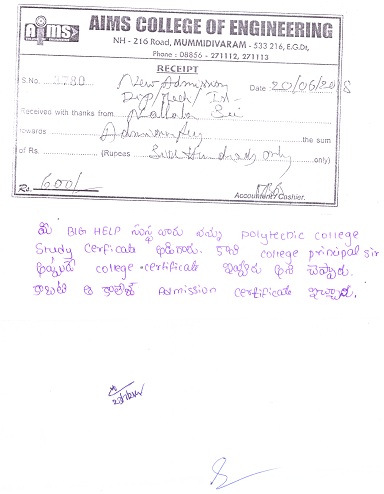 AIMS AIMS COLLEGE OF ENGINEERING
NH - 216 Road, MUMMIDIVARAM - 533 216, E.G.Dt,
Phone : 08856 - 271112, 271113
RECEIPT
S.No. 3780 New Admission Date 20/06/2018
Dip/Tech/Ist
Received with thanks from
towards Admission fee the sum
of Rs. (Rupees Six Hundreds only only)
Rs. 600/- Accountant / Cashier.
మీ BIG HELP సంస్థ వారు మమ్మ polytecnic college
Study Cerficate అడిగారు. కాని college principal sir
ఇప్పుడే college certificate ఇవ్వరు అని చెప్పారు.
కాబట్టి ఆ కాలేజీ Admission certificate ఇచ్చారు.